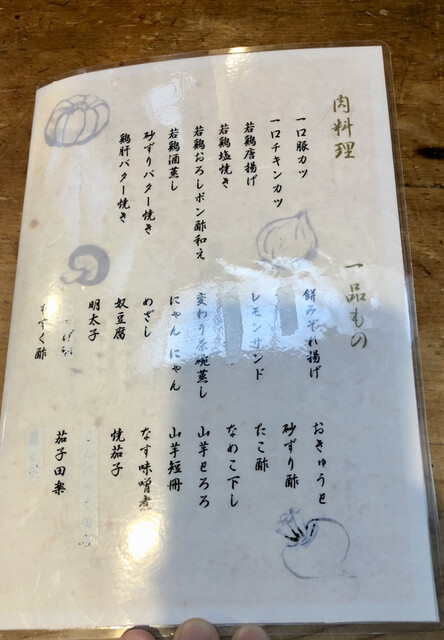 肉料理
一口豚カツ
一口チキンカツ
若鶏唐揚げ
若鶏塩焼き
若鶏おろしポン酢和え
若鶏酒蒸し
砂ずりバター焼き
鶏肝バター焼き
一品もの
餅みぞれ揚げ
レモンサンド
変わり茶碗蒸し
にゃんにゃん
めざし
奴豆腐
明太子
もずく酢
おきゅうと
砂ずり酢
たこ酢
なめこ下し
山芋とろろ
山芋短冊
なす味噌煮
焼茄子
茄子田楽